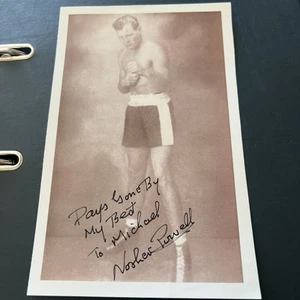 Days Gone By
My Best
To Michael
Nosher Powell